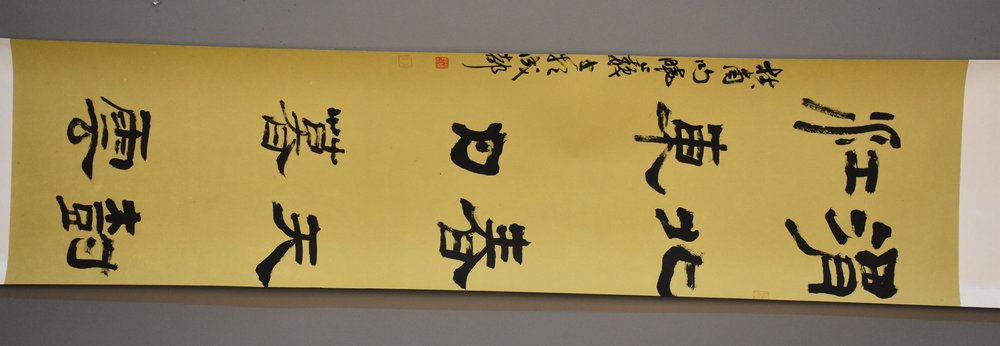 渭北春天樹
江東日暮雲
杜甫句 於成都